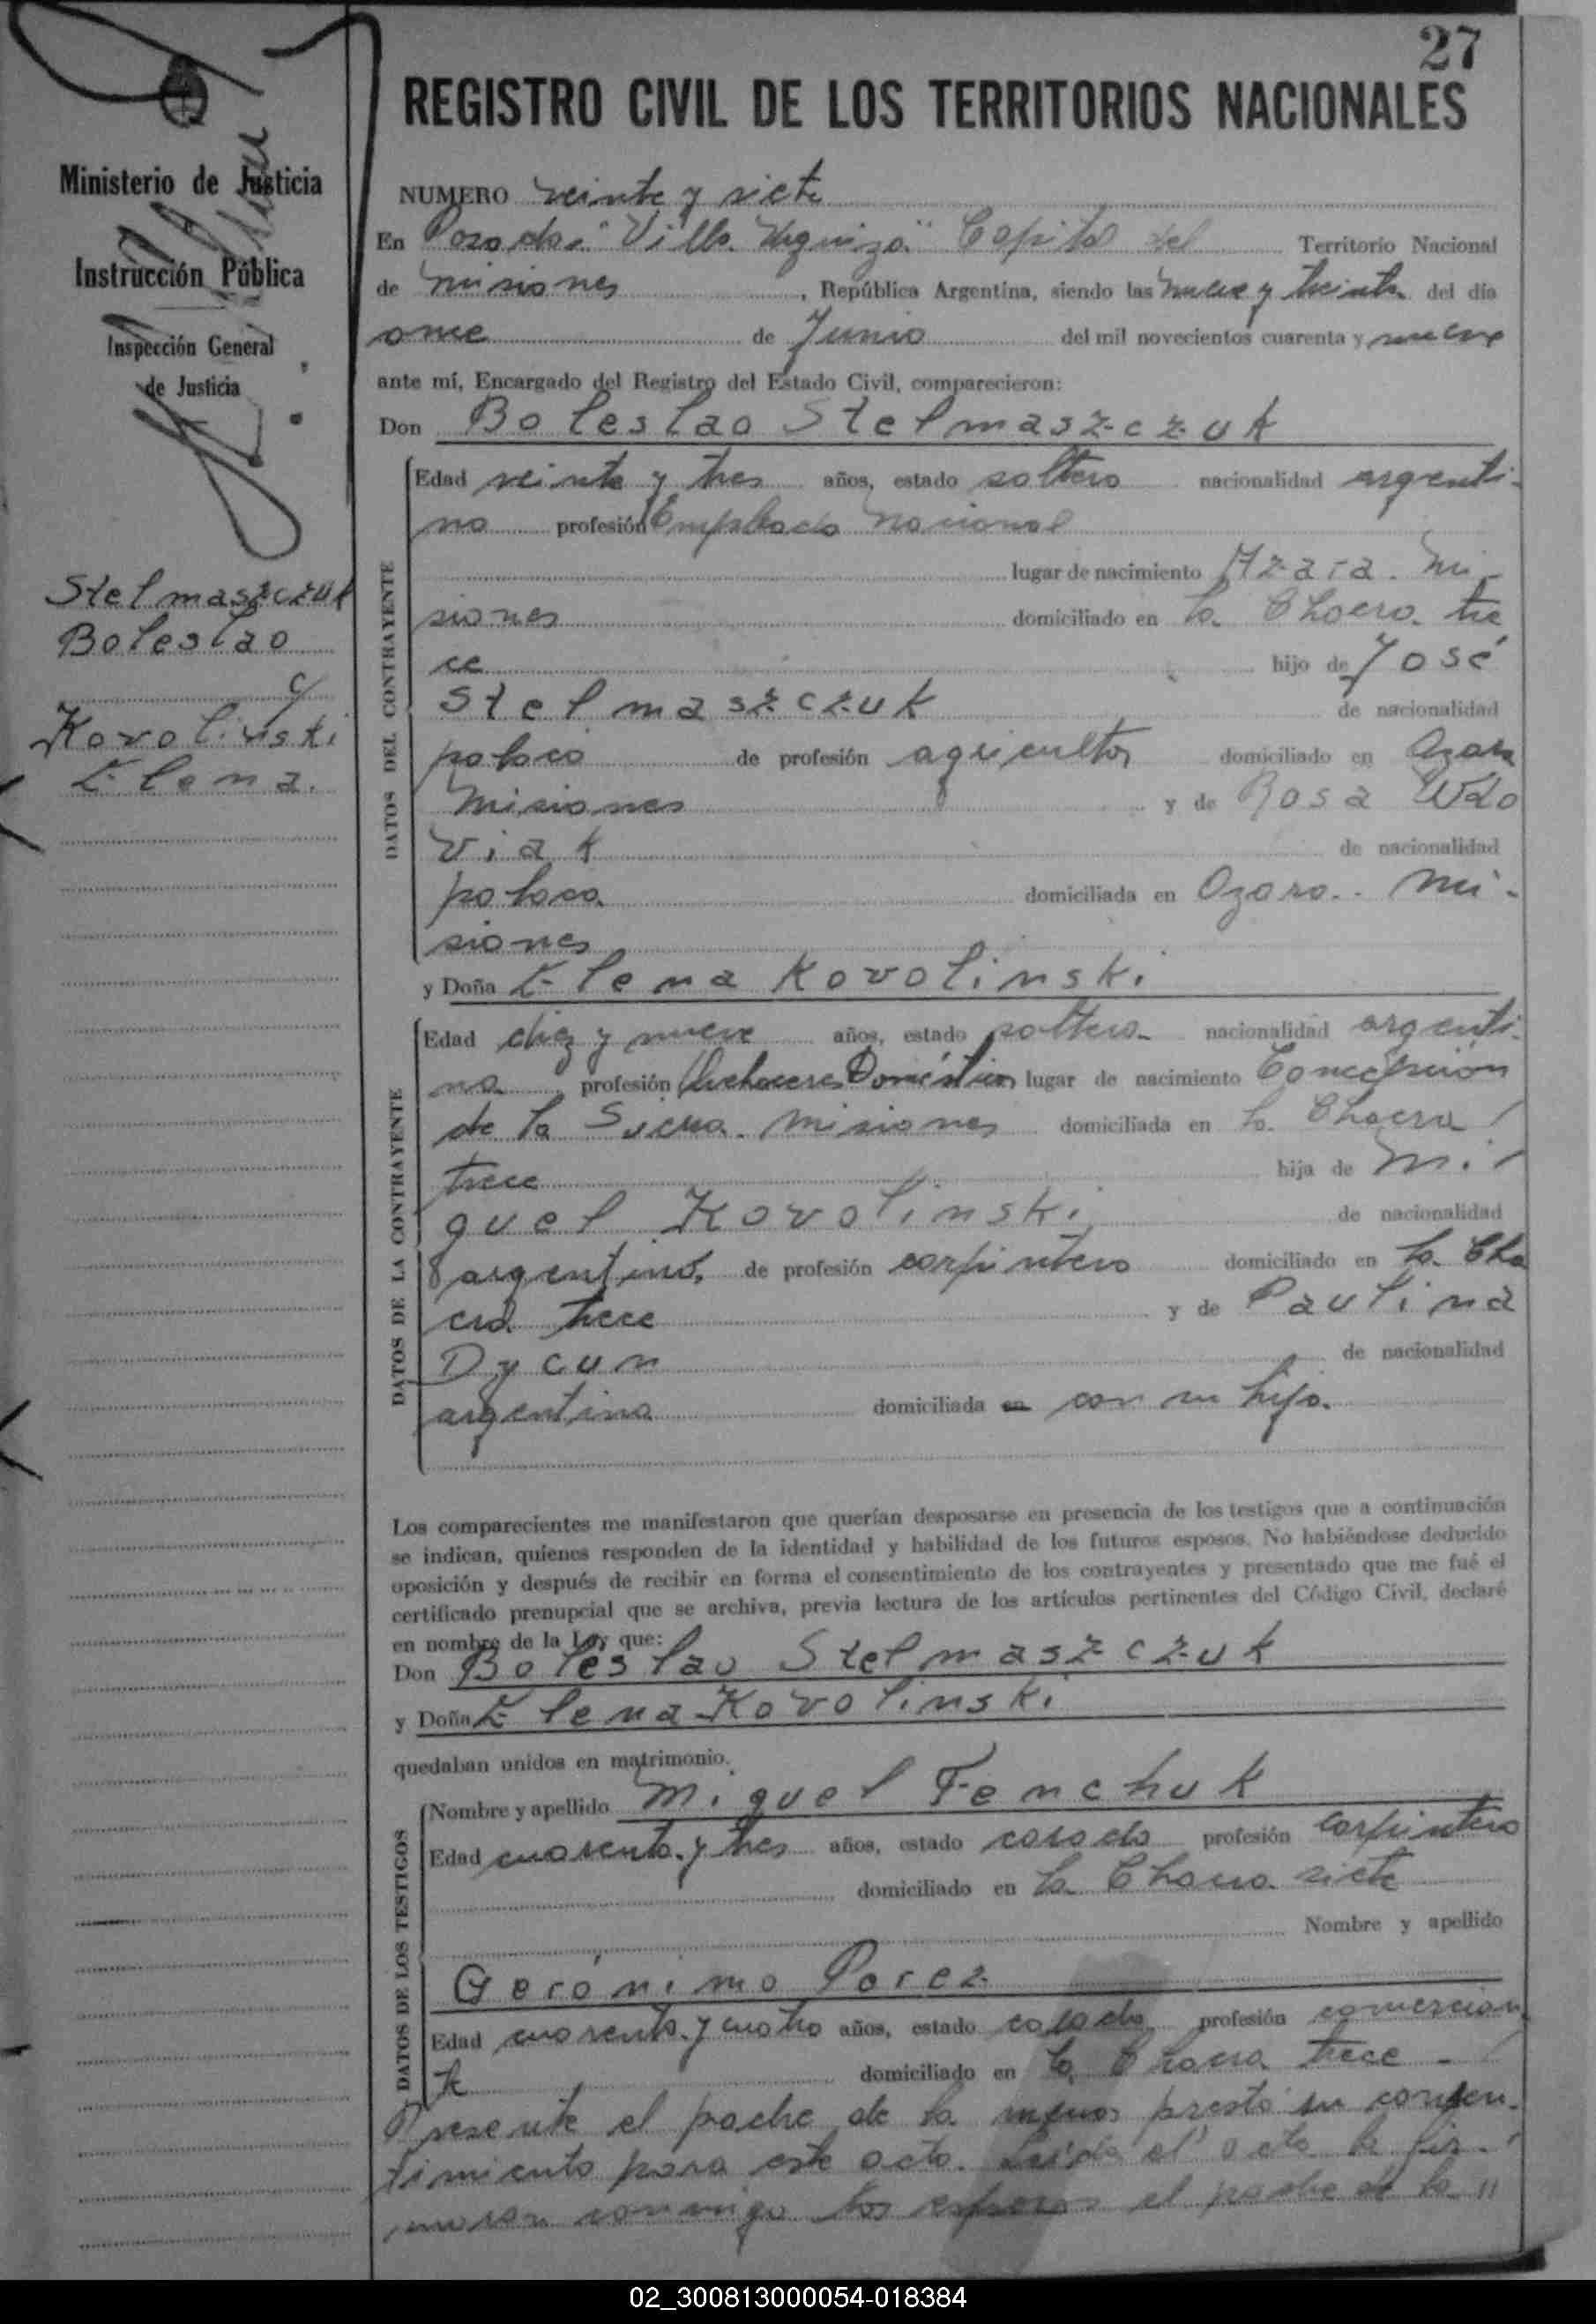 27
REGISTRO CIVIL DE LOS TERRITORIOS NACIONALES
Ministerio de Justicia
Instrucción Pública
Inspección General
de Justicia
Stelmaszczuk
Boleslao
c/
Kovolinski
Elena.
NUMERO veinte y siete
En Posadas "Villa Urquiza" Capital del Territorio Nacional
de Misiones, República Argentina, siendo las nueve y treinta del día
once de Junio del mil novecientos cuarenta y nueve
ante mí, Encargado del Registro del Estado Civil, comparecieron:
Don Boleslao Stelmaszczuk
DATOS DEL CONTRAYENTE
Edad veinte y tres años, estado soltero nacionalidad argenti-
no profesión Empleado Nacional
lugar de nacimiento Azara. Mi-
siones domiciliado en la Chacra tre
ce hijo de José
Stelmaszczuk de nacionalidad
polaco de profesión agricultor domiciliado en Azara
Misiones y de Rosa Wdo
viak de nacionalidad
polaca domiciliada en Azara.. Mi-
siones
y Doña Elena Kovolinski
DATOS DE LA CONTRAYENTE
Edad diez y nueve años, estado soltera nacionalidad argenti-
na profesión Quehaceres Domésticos lugar de nacimiento Concepción
de la Sierra. Misiones domiciliada en la Chacra
trece hija de Mi
guel Kovolinski de nacionalidad
argentino, de profesión carpintero domiciliado en la Cha
cra trece y de Paulina
Dycun de nacionalidad
argentina domiciliada en con su hija.
Los comparecientes me manifestaron que querían desposarse en presencia de los testigos que a continuación
se indican, quienes responden de la identidad y habilidad de los futuros esposos. No habiéndose deducido
oposición y después de recibir en forma el consentimiento de los contrayentes y presentado que me fué el
certificado prenupcial que se archiva, previa lectura de los artículos pertinentes del Código Civil, declaré
en nombre de la Ley que:
Don Boleslao Stelmaszczuk
y Doña Elena Kovolinski
quedaban unidos en matrimonio.
DATOS DE LOS TESTIGOS
Nombre y apellido Miguel Fenchuk
Edad cuarenta y tres años, estado casado profesión carpintero
domiciliado en la Chacra siete
Nombre y apellido
Gerónimo Perez
Edad cuarenta y cuatro años, estado casado profesión comercian
te domiciliado en la Chacra trece -
Presente el padre de la menor prestó su consen-
timiento para este acto. Leida el acta la fir-
maron conmigo los esposos el padre de la "
02_300813000054-018384